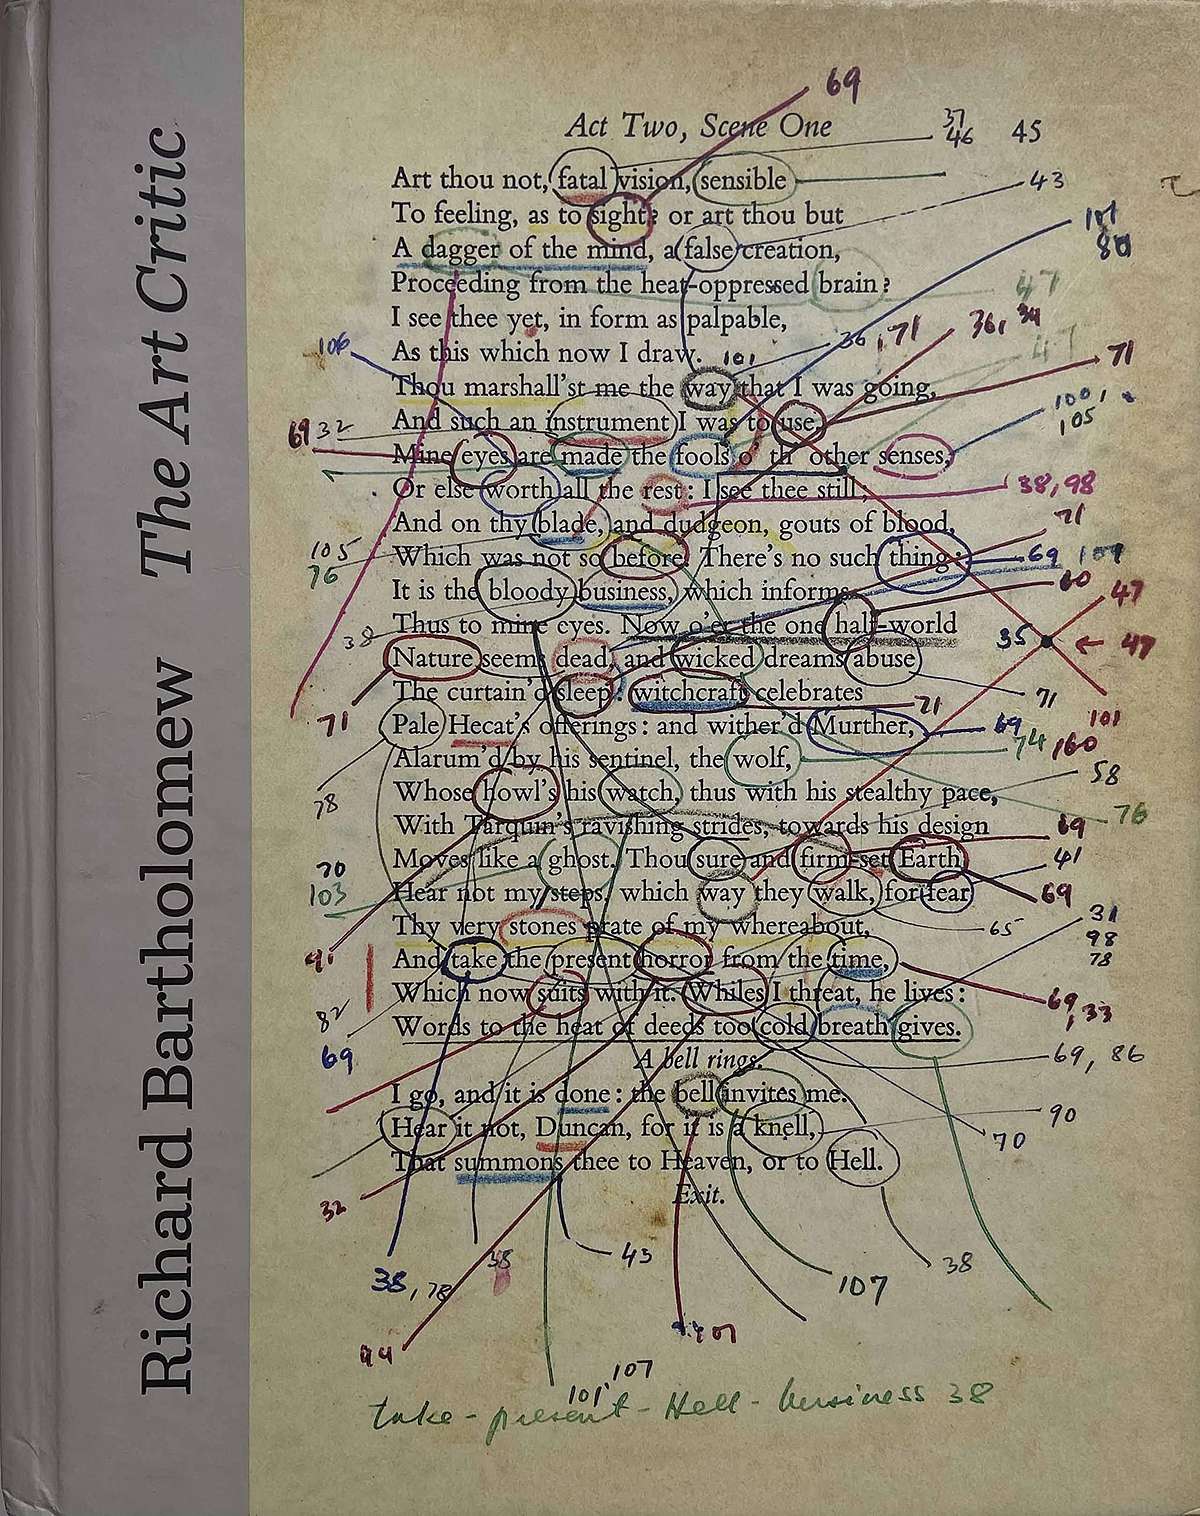 Richard Bartholomew The Art Critic
69
Act Two, Scene One
37
46
45
Art thou not, fatal vision, sensible
43
To feeling, as to sight? or art thou but
101
A dagger of the mind, a false creation,
Proceeding from the heat-oppressed brain?
47
I see thee yet, in form as palpable,
36, 71
36, 34
As this which now I draw.
101
106
47
71
Thou marshall'st me the way that I was going,
100,
105
And such an instrument I was to use,
69 32
Mine eyes are made the fools o' th' other senses,
Or else worth all the rest: I see thee still;
38, 98
And on thy blade, and dudgeon, gouts of blood,
71
105
76
Which was not so before. There's no such thing:
69 109
It is the bloody business, which informs
60
47
Thus to mine eyes. Now o'er the one half-world
38
35
← 47
Nature seems dead, and wicked dreams abuse
71
The curtain'd sleep: witchcraft celebrates
71
71
Pale Hecat's offerings: and wither'd Murther,
69
101
74
160
Alarum'd by his sentinel, the wolf,
58
78
Whose howl's his watch, thus with his stealthy pace,
76
With Tarquin's ravishing strides, towards his design
69
70
Moves like a ghost. Thou sure and firm-set Earth
41
103
Hear not my steps, which way they walk, for fear
69
Thy very stones prate of my whereabout,
65
31
98
78
91
And take the present horror from the time,
Which now suits with it. Whiles I threat, he lives:
69, 33
82
69
Words to the heat of deeds too cold breath gives.
69, 86
A bell rings.
I go, and it is done: the bell invites me.
90
Hear it not, Duncan, for it is a knell,
70
That summons thee to Heaven, or to Hell.
32
Exit.
38
43
38
38, 78
107
44
101
107
101
take - present - Hell - business 38